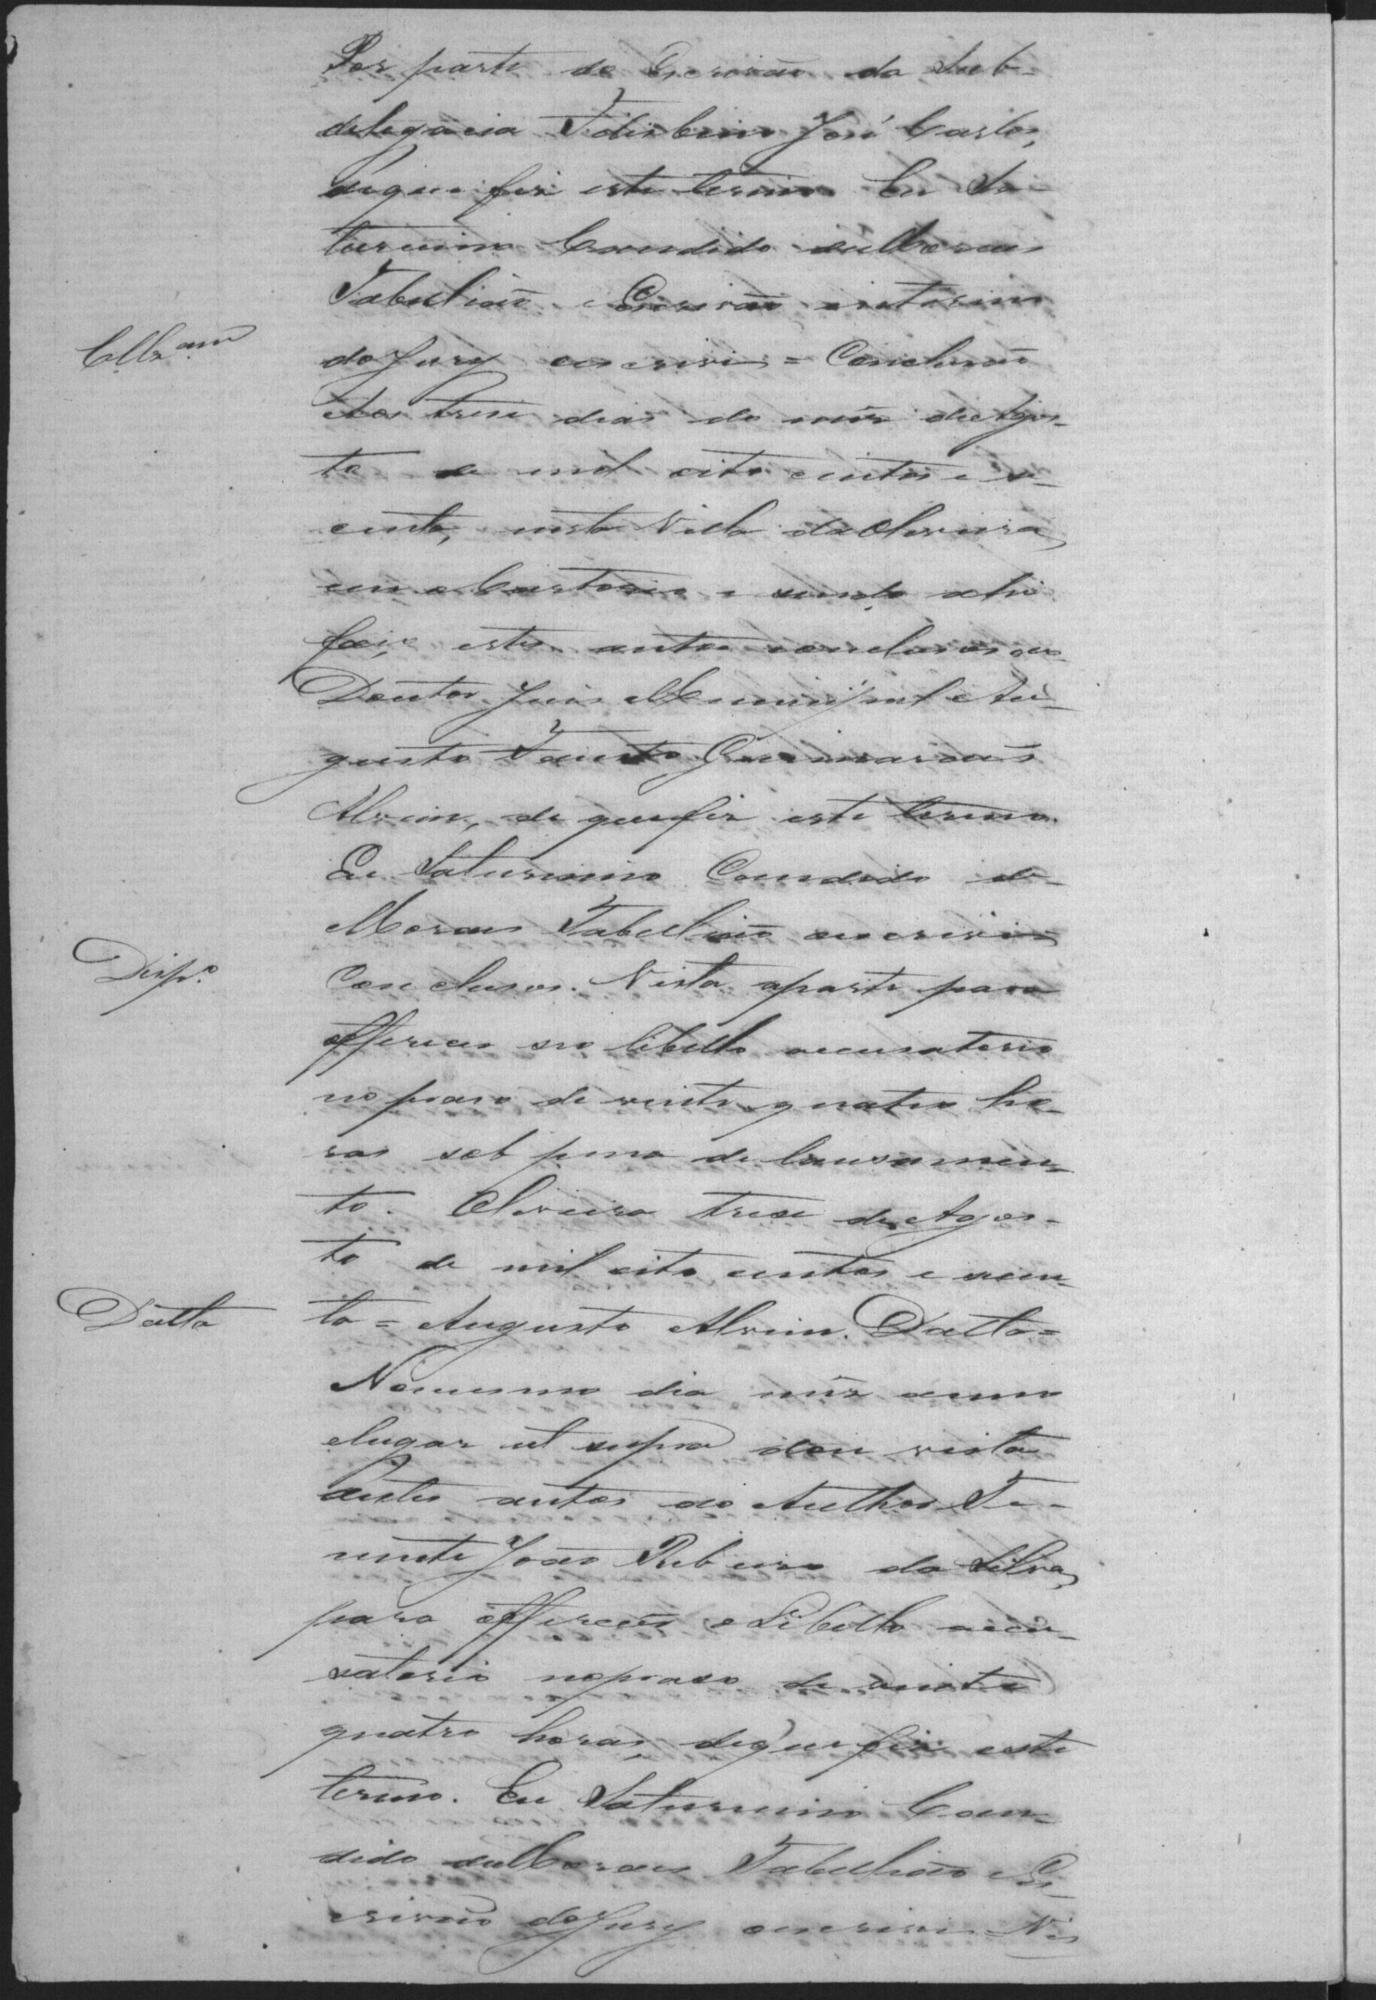 Por parte do Escrivão da Sub-
delegacia Felisbino José Carlos,
de que fiz este termo Eu Sa-
turnino Candido de Moraes
Tabelião e Escrivão interino
do Jury escrevi = Conclusão
Clzam
Aos tres dias do mês de Agos-
to de mil oito centos e se-
centa, nesta Villa da Oliveira,
em o Cartorio e sendo ahi
faço estes autos conclusos ao
Doutor Juis Municipal Au-
gusto Fausto Guimarães
Alvim, de que fiz este termo.
Eu Saturnino Candido de
Moraes Tabellião escrevi
Desp.º
Conclusos. Vista a parte para
offerecer seo libello accusatorio
no praso de vinte quatro ho-
ras sob pena de lansamen-
to. Oliveira tres de Agos-
to de mil oito centos e secen-
ta = Augusto Alvim. Datta =
Datta
No mesmo dia mês anno
e lugar ut supra dou vista
destes autos ao Author Te-
nente João Ribeiro da Silva,
para offerecer o Libello accu-
satorio no praso de vinte
quatro horas, de que fiz este
termo. Eu Saturnino Can-
dido de Moraes Tabellião e Es-
crivão do Jury escrevi = Vis